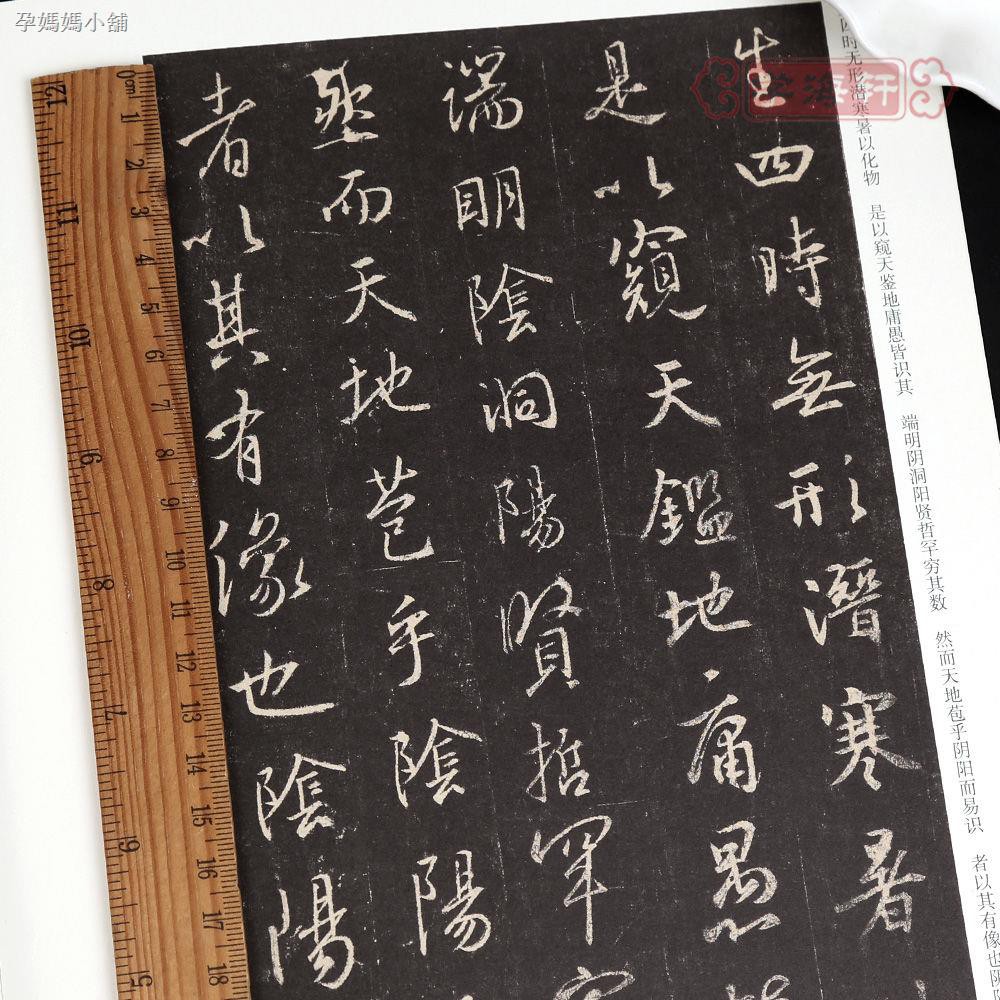 孕媽媽小舖
学海轩
四时无形潜寒暑以化物 是以窥天鉴地庸愚皆识其 端明阴洞阳贤哲罕穷其数 然而天地苞乎阴阳而易识 者以其有像也阴
生四時無形潛寒暑
是以窺天鑑地庸愚
端明陰洞陽賢哲罕
然而天地苞乎陰陽
者以其有像也陰陽
0cm 1 2 3 4 5 6 7 8 9 10 11 12 13 14 15 16 17 18
12 11 10 9 8 7 6 5